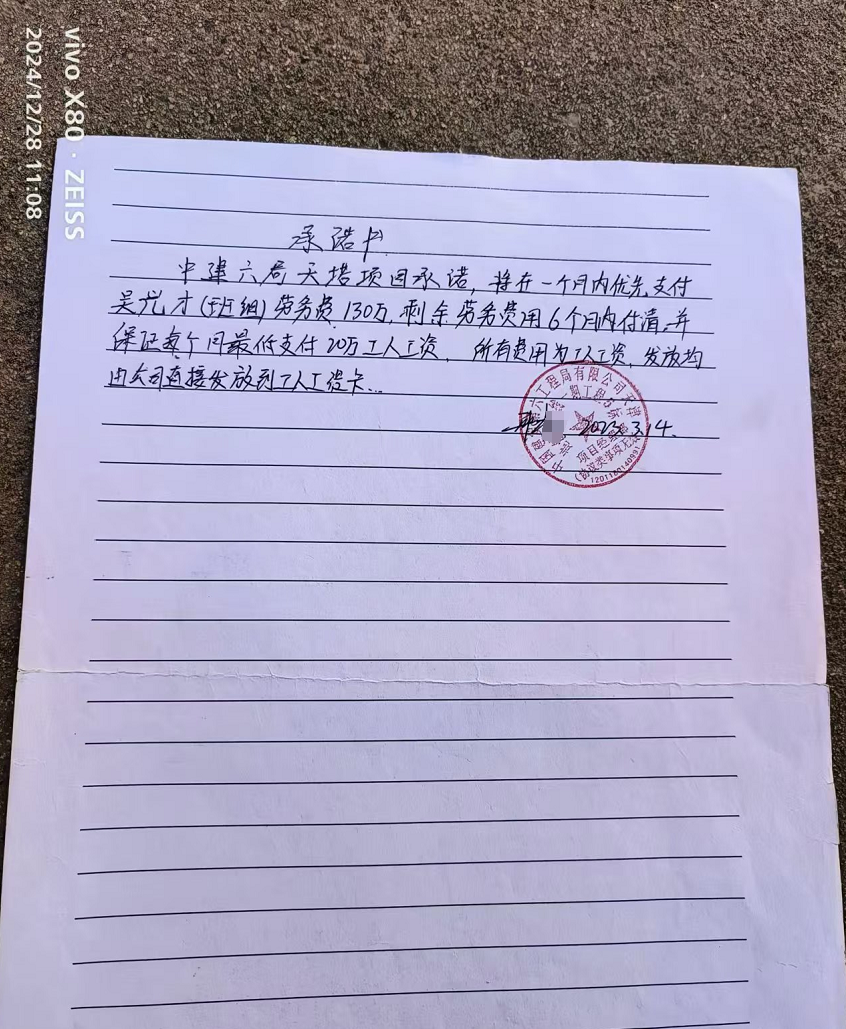 承诺书
中建六局天塔项目承诺，将在一个月内优先支付
吴光才（班组）劳务费130万，剩余劳务费用6个月内付清，并
保证每个月最低支付20万工人工资，所有费用为工人工资，发放均
由公司直接发放到工人工资卡...
2023.3.14.
六工程局有限公司天津
项目经理部
1201160140991
vivo X80 · ZEISS
2024/12/28 11:08